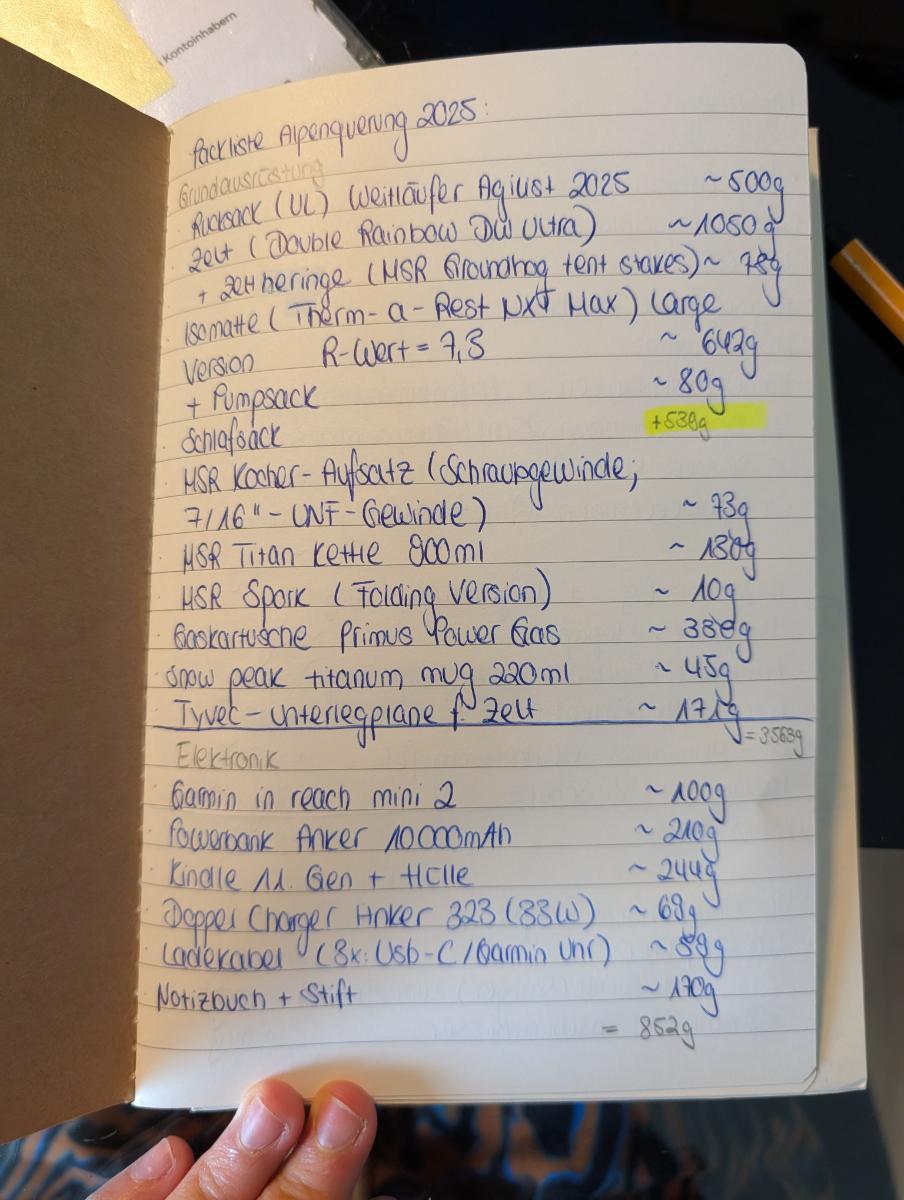 Kontoinhabern
Packliste Alpenquerung 2025:
Grundausrüstung
· Rucksack (UL) Weitläufer Agilist 2025 ~500g
· Zelt (Double Rainbow DW Ultra) ~1050g
+ Zeltheringe (MSR Groundhog tent stakes) ~
· Isomatte (Therm-a-Rest NXT Max) Large
Version R-Wert = 7,3 ~ 642g
+ Pumpsack ~ 80g
· Schlafsack +538g
· MSR Kocher-Aufsatz (Schraubgewinde;
7/16"-UNF-Gewinde) ~ 73g
· MSR Titan Kettle 900ml ~
· MSR Spork (Folding Version) ~ 10g
· Gaskartusche Primus Power Gas ~
· Snow peak titanum mug 220ml ~ 45g
· Tyvec-unterlegplane f. Zelt ~ 171g
= 3563g
Elektronik
· Garmin in reach mini 2 ~ 100g
· Powerbank Anker 10000mAh ~ 210g
· Kindle 11. Gen + Hülle ~ 244g
· Doppel Charger Anker 323 (33W) ~ 69g
· Ladekabel (3x: Usb-C/Garmin Uhr) ~
· Notizbuch + Stift ~ 170g
= 852g